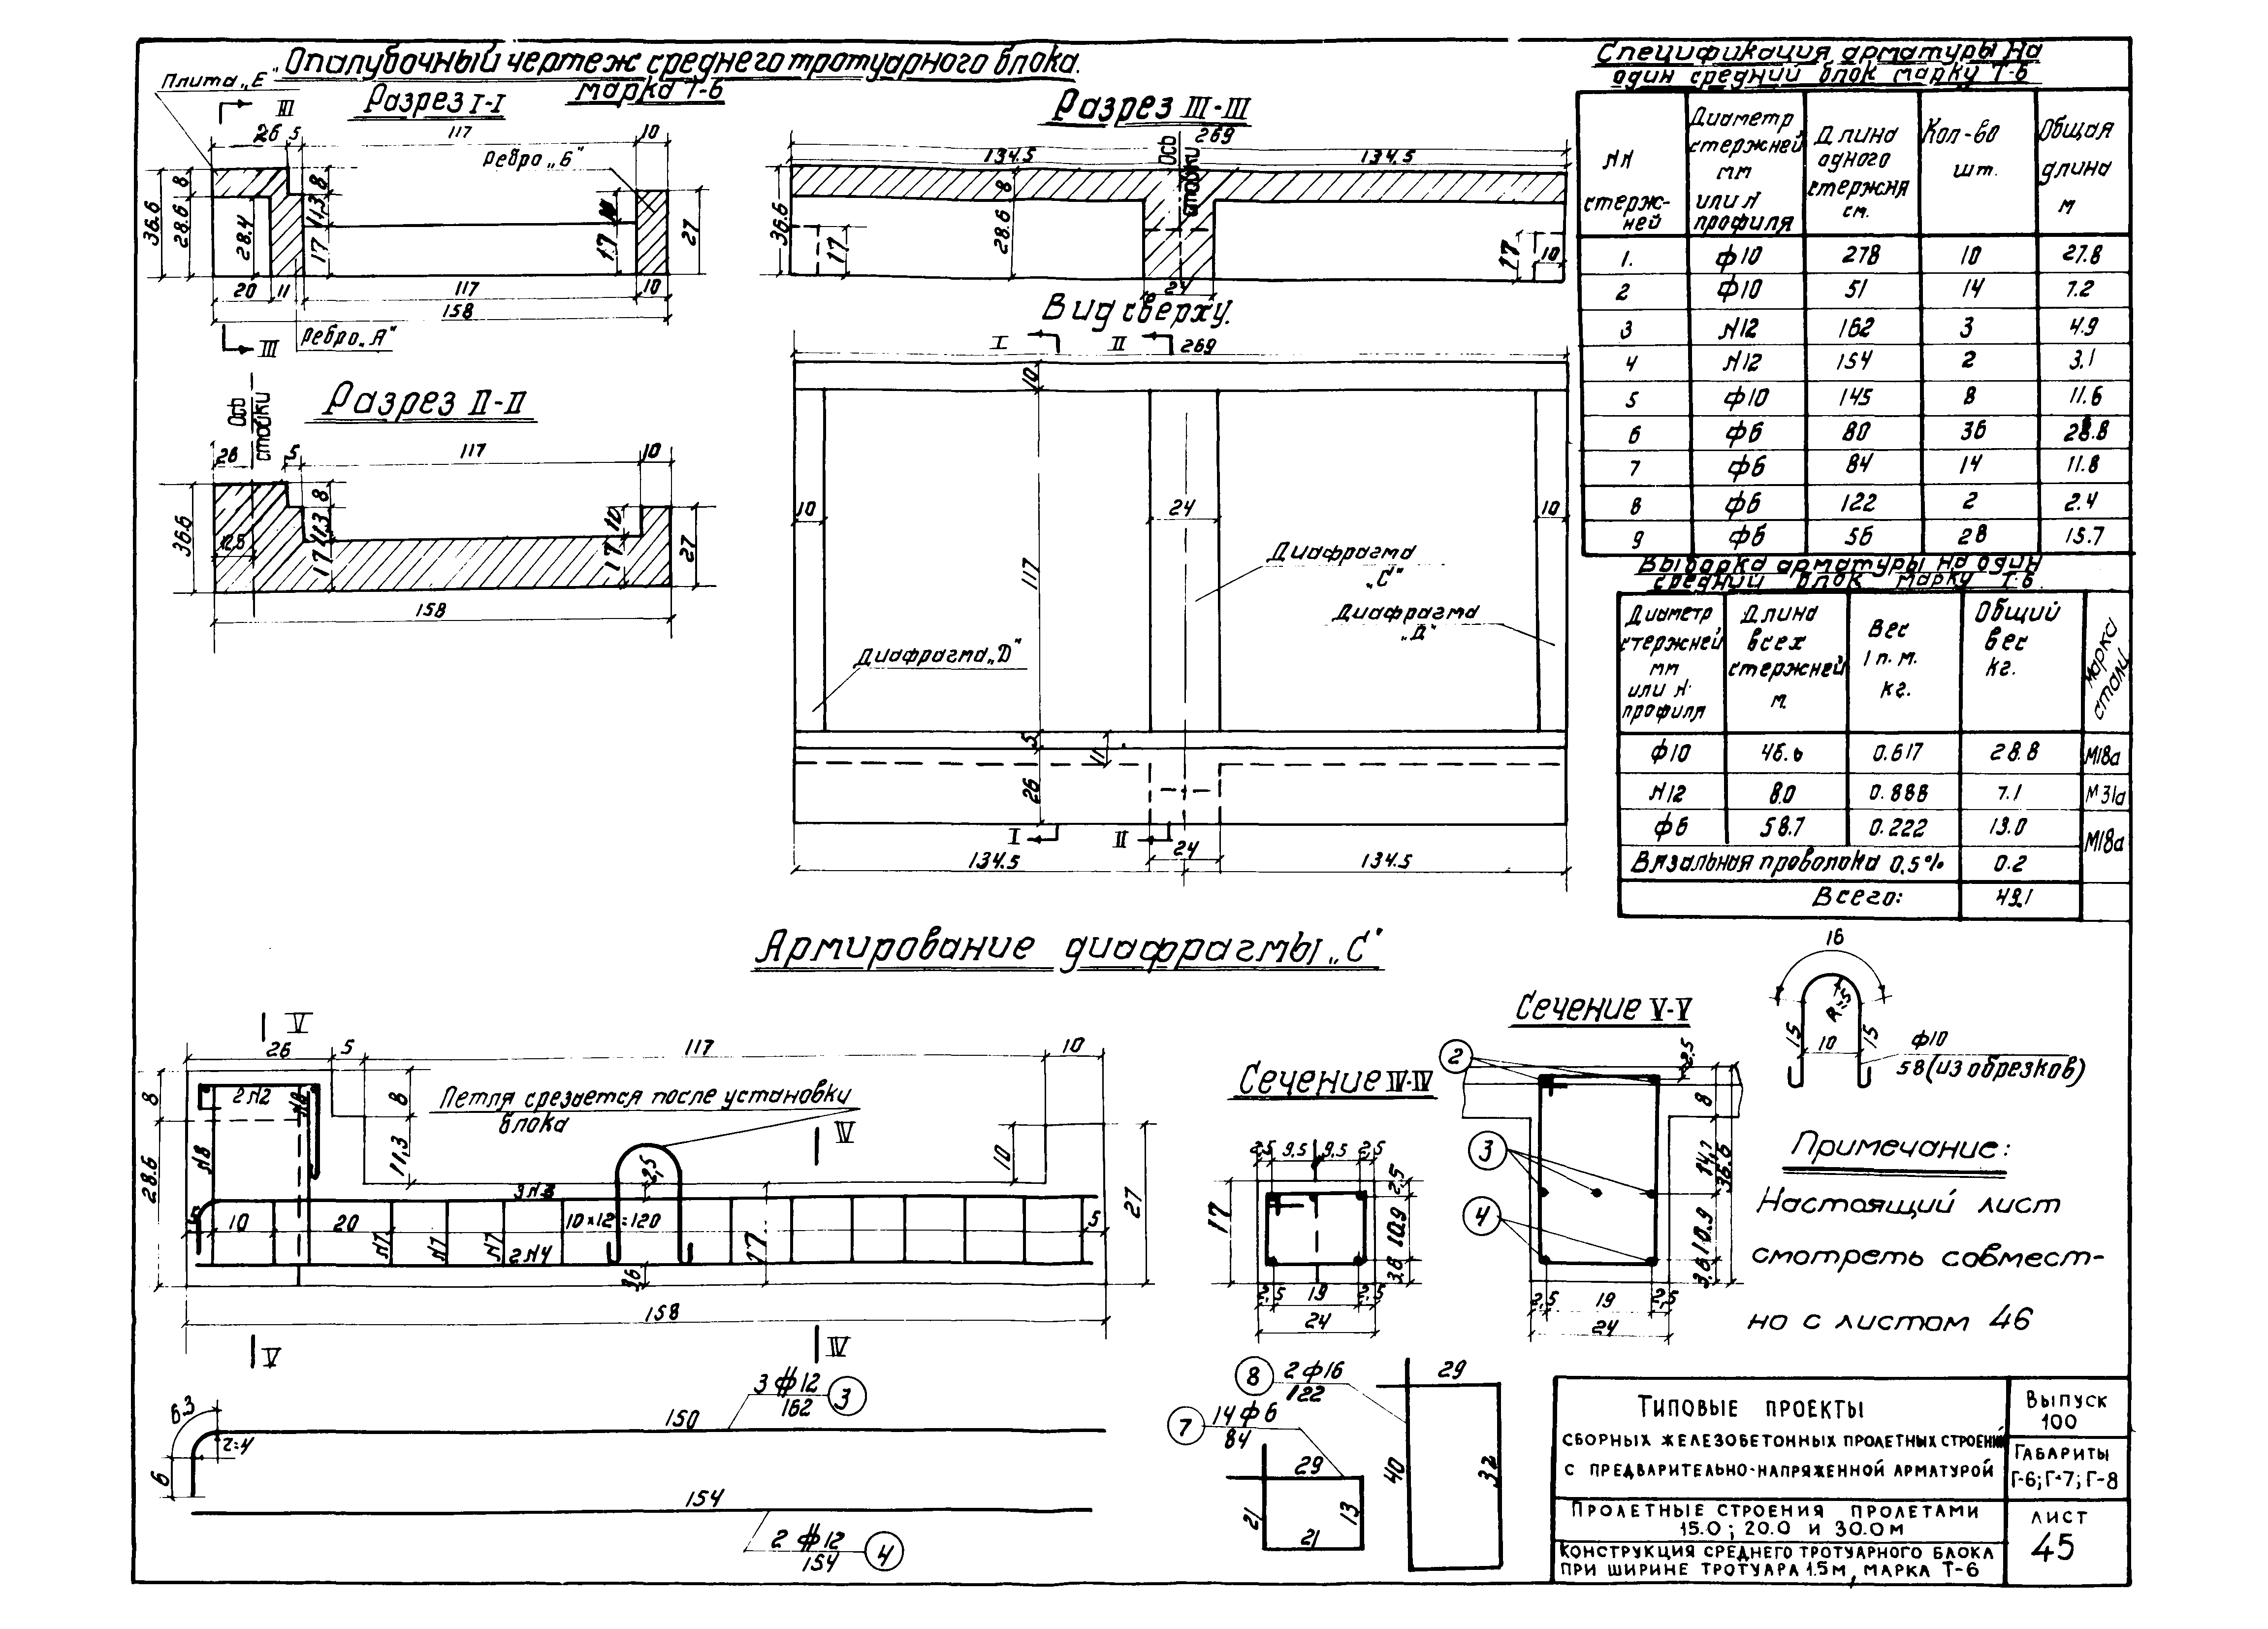 Опалубочный чертеж среднего тротуарного блока.
марка Т-6
Плита „Е"
III
Разрез I-I
26 5 117 10
Ребро „Б"
36.6 28.6 8 28.4 8 11.3 17 17 27
20 11 117 10
158
III
Ребро „А"
Разрез III-III
269
134.5 134.5
Ось стойки
36.6 17 28.6 8 17 10
24
Разрез II-II
Ось стойки
26 5 117 10
36.6 12.5 8 11.3 17 10 17 27
158
Вид сверху.
I II
269
10
10 117 24 10
Диафрагма
„С"
Диафрагма
„Д"
Диафрагма „D"
5 11
26
I II
24
134.5 134.5
Спецификация арматуры на
один средний блок марку Т-6
NN стерж-ней | Диаметр стержней мм или N профиля | Длина одного стержня см. | Кол-во шт. | Общая длина м
1. ф10 278 10 27.8
2 ф10 51 14 7.2
3 N12 162 3 4.9
4 N12 154 2 3.1
5 ф10 145 8 11.6
6 ф6 80 36 28.8
7 ф6 84 14 11.8
8 ф6 122 2 2.4
9 ф6 56 28 15.7
Выборка арматуры на один
средний блок марку Т-6
Диаметр стержней мм или N профиля | Длина всех стержней м. | Вес 1 п.м. кг. | Общий вес кг. | Марка стали
ф10 46.6 0.617 28.8 М18а
N12 8.0 0.888 7.1 М31а
ф6 58.7 0.222 13.0 М18а
Вязальная проволока 0.5% 0.2
Всего: 49.1
Армирование диафрагмы „С"
V
26 5 117 10
8 28.6
2N2 N8
N8
8 11.3
Петля срезается после установки
блока
IV
10 27
2,5
3N3
5 10 20 10×12=120 5
N7 N7 N7 2N4 17
3.6
158
V IV
3 #12
162
3
63 150
r=4
6
154
2 #12
154
4
Сечение IV-IV
2,5 9.5 9.5 2,5
17 2,5 10.9 3.6
2,5 19 2,5
24
Сечение V-V
2
3
4
2,5 8 14,1 36.6 10.9 3.6
2,5 19 2,5
24
16
R=5
15 10 15
ф10
58 (из обрезков)
Примечание:
Настоящий лист
смотреть совмест-
но с листом 46
8 2ф16
122
29
40 32
7 14ф6
84
29
21 13
21
Типовые проекты
сборных железобетонных пролетных строений
с предварительно-напряженной арматурой
Пролетные строения пролетами
15.0; 20.0 и 30.0м
Конструкция среднего тротуарного блока
при ширине тротуара 1.5м, марка Т-6
Выпуск
100
Габариты
Г-6; Г-7; Г-8
лист
45